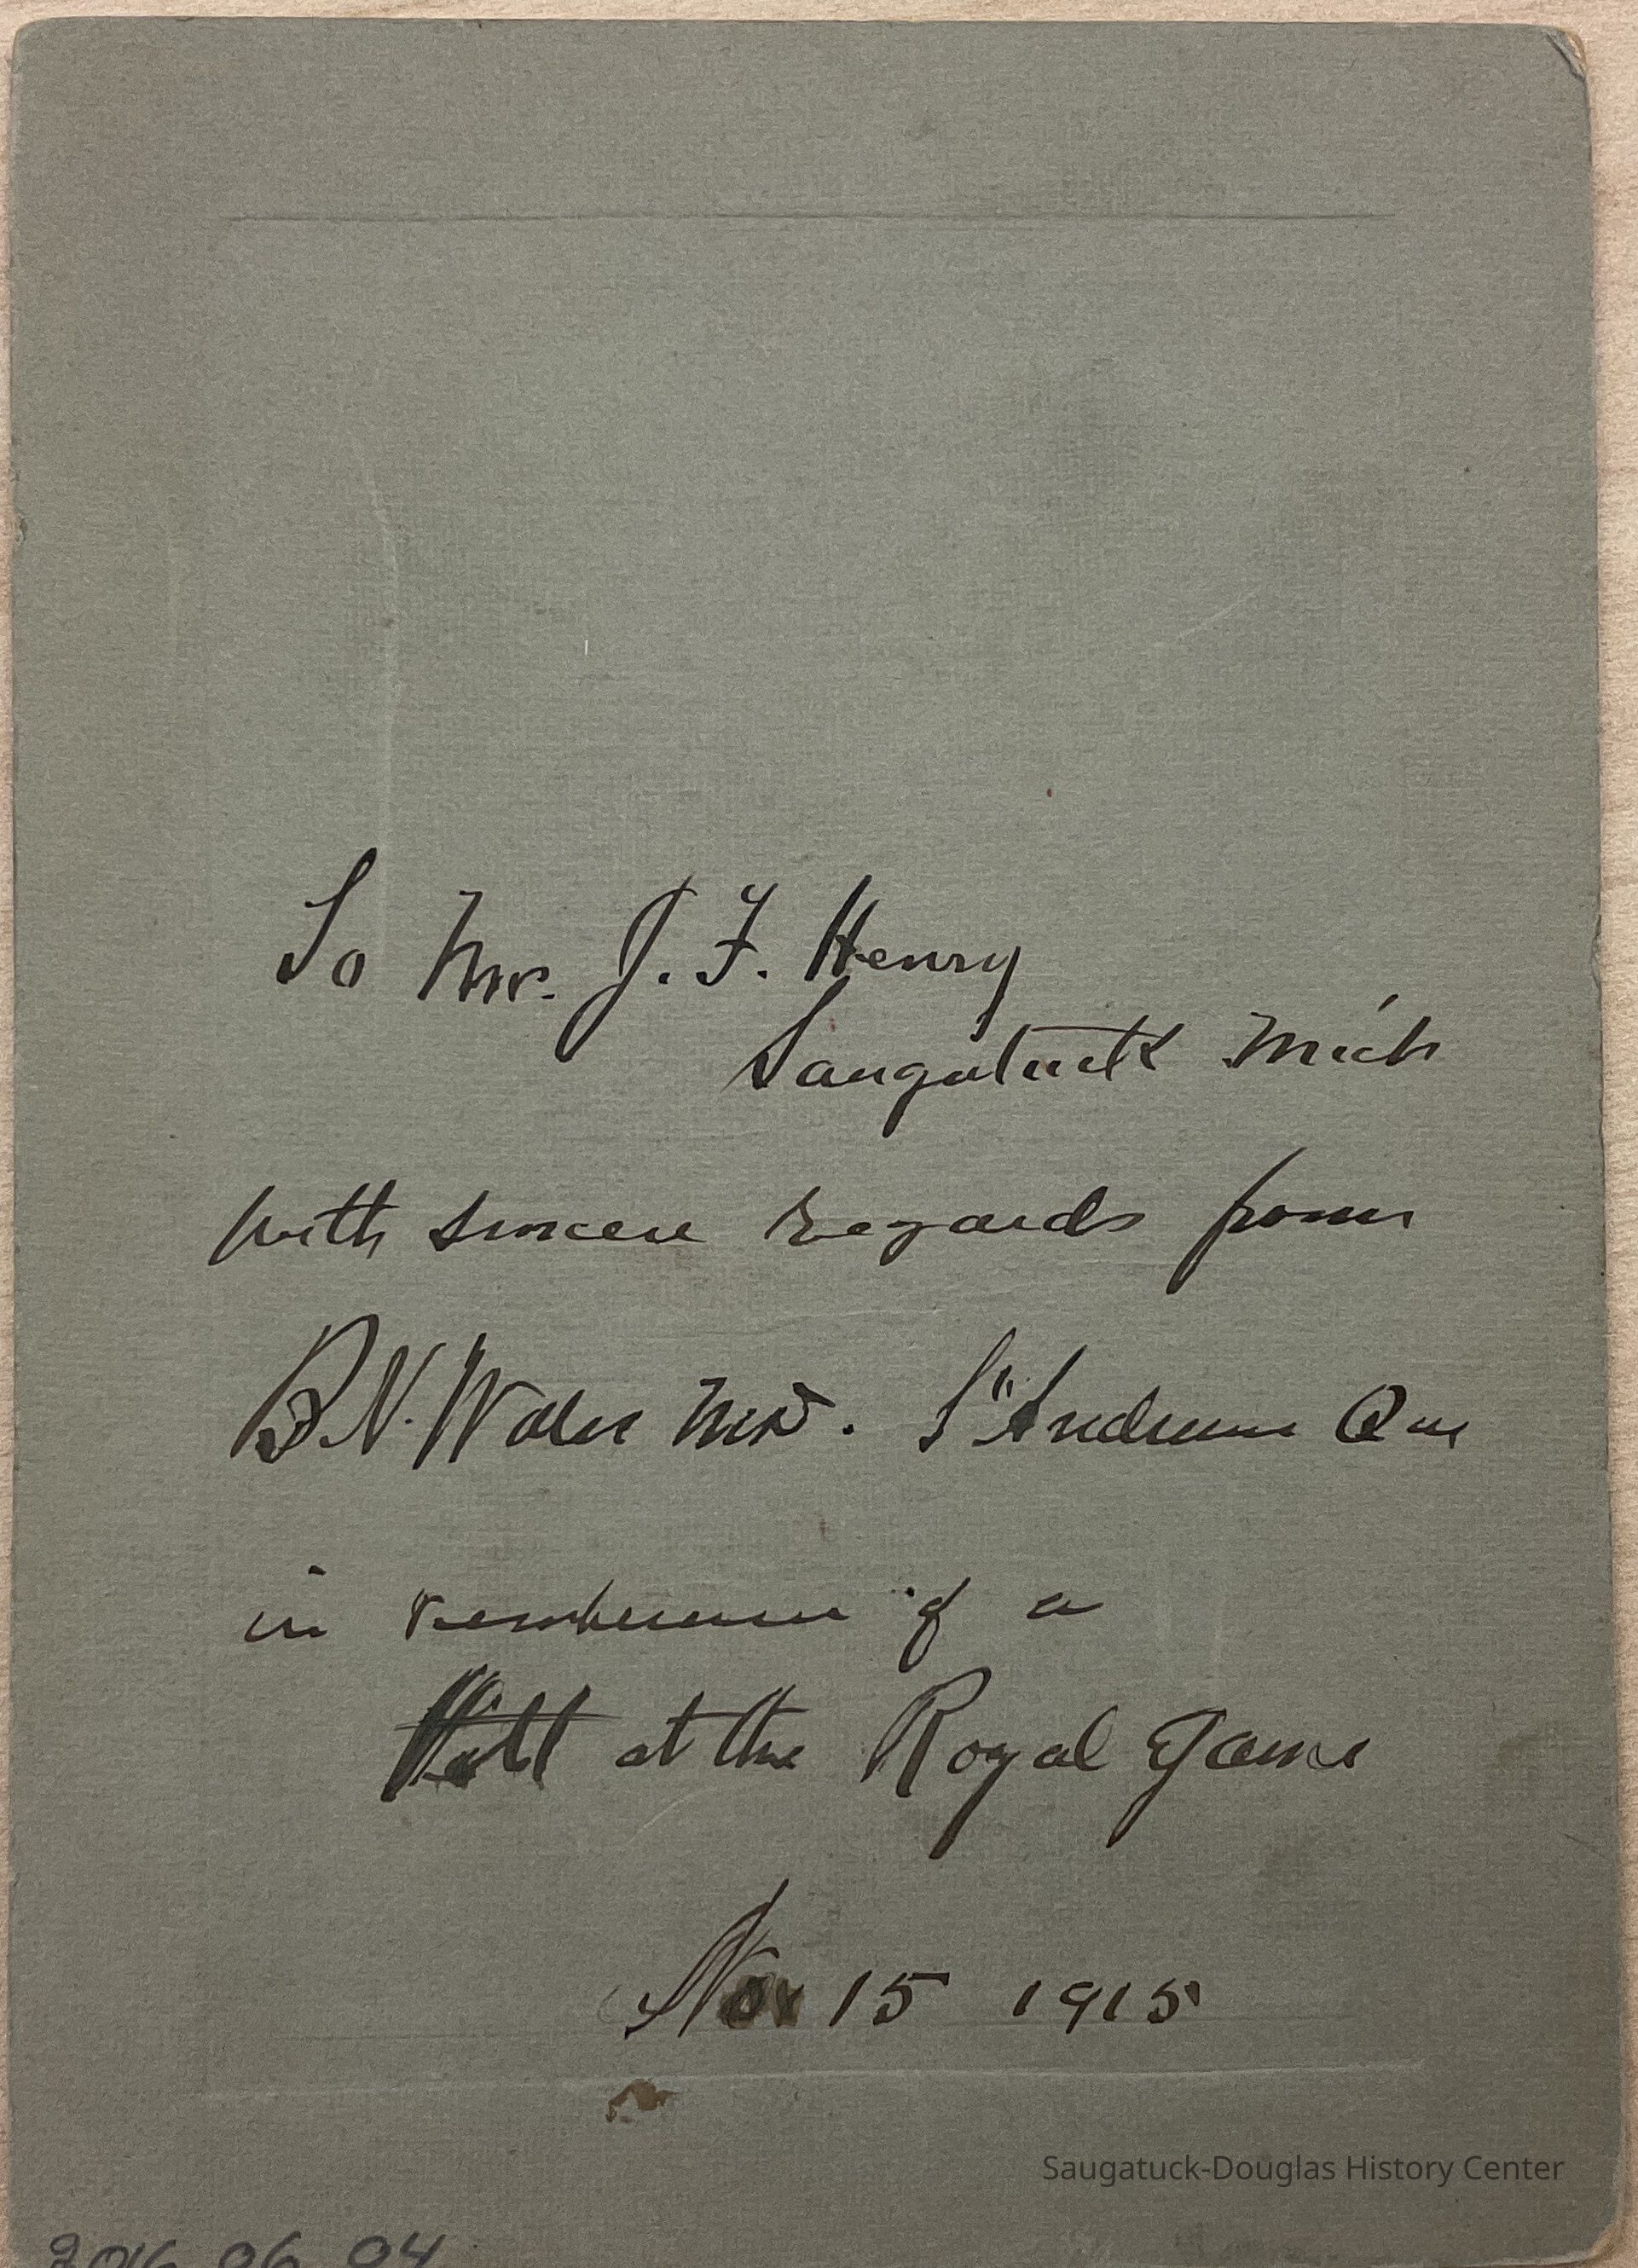 To Mr. J. F. Henry
Saugatuck Mich
with sincere regards from
B.N. Wales MD. St Andrews Que
in rembrence of a
at the Royal Game
Nov 15 1915
Saugatuck-Douglas History Center
2016 06 04